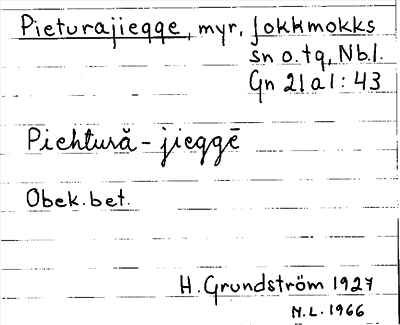 Pieturajiegge, myr, Jokkmokks
sn o. tg, Nb.l.
Gn 21 a 1 : 43
Piehtură - jieggē
Obek. bet.
H. Grundström 1927
N.L. 1966